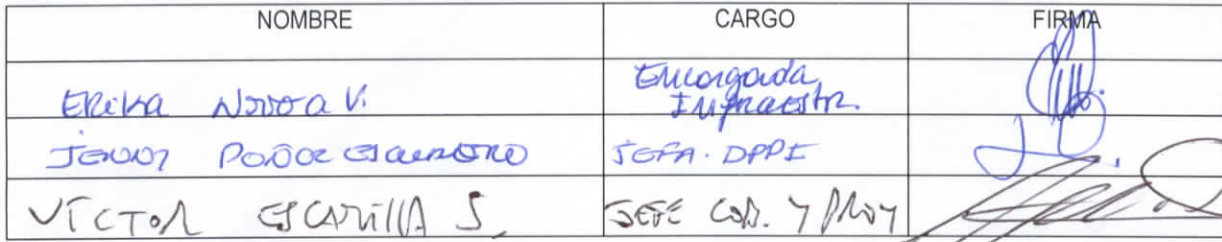 NOMBRE CARGO FIRMA
Erika Novoa V. Encargada
Infraestr.
Jenny JEFA. DPPI
VÍCTOR ESCARILLA S. JEFE Y PROY